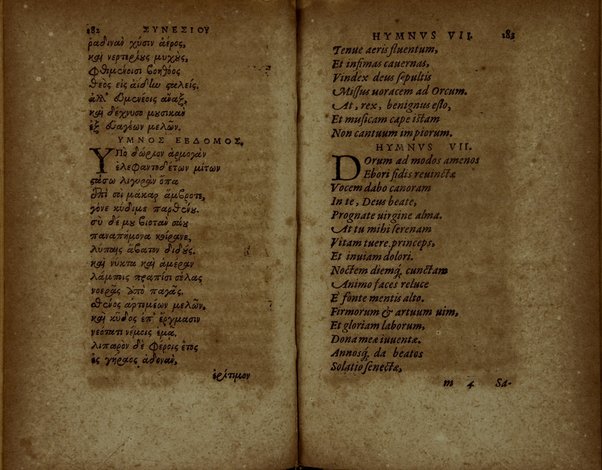 182 ΣΥΝΕΣΙΟΥ
ῥαδινὰν χύσιν ἀέρος,
καὶ νερτερίους μυχοὺς,
φθιμένοισι βοηθόος
θεὸς εἰς ἀΐδαν σταλείς.
ἀλλ' εὐμενέοις ἄναξ,
καὶ δέχνυσο μουσικὰν
ἐξ εὐαγέων μελῶν.
ΥΜΝΟΣ ΕΒΔΟΜΟΣ.
ΥΠὸ δώριον ἁρμογὰν
ἐλεφαντοδέτων μίτων
στάσω λιγυρὰν ὄπα
ἐπὶ σοὶ μάκαρ ἄμβροτε,
γόνε κύδιμε παρθένου.
σὺ δέ μου βιοτὰν σάου
παναπήμονα κοίρανε,
λύπαις ἄβατον διδούς.
καὶ νύκτα καὶ ἁμέραν
λάμποις πραπίσι σέλας
νοερᾶς ἀπὸ παγᾶς.
σθένος ἀρτιμέων μελῶν,
καὶ κῦδος ἐπ' ἔργμασιν
νεότατι νέμοις ἐμᾷ.
λιπαρὸν δὲ φέροις ἔτος
ἐς γήραος ἁδονὰν,
ἐρίτιμον
HYMNVS VII. 183
Tenue aeris fluentum,
Et infimas cauernas,
Vindex deus sepultis
Missus uoracem ad Orcum.
At, rex, benignus esto,
Et musicam cape istam
Non cantuum impiorum.
HYMNVS VII.
DOrum ad modos amœnos
Ebori fidis reuinctæ
Vocem dabo canoram
In te, Deus beate,
Prognate uirgine alma.
At tu mihi serenam
Vitam tuere, princeps,
Et inuiam dolori.
Noctem diemq; cunctam
Animo faces reluce
E fonte mentis alto.
Firmorum & artuum uim,
Et gloriam laborum,
Dona meæ iuuentæ.
Annosq; da beatos
Solatio senectæ,
m 4 Sa-